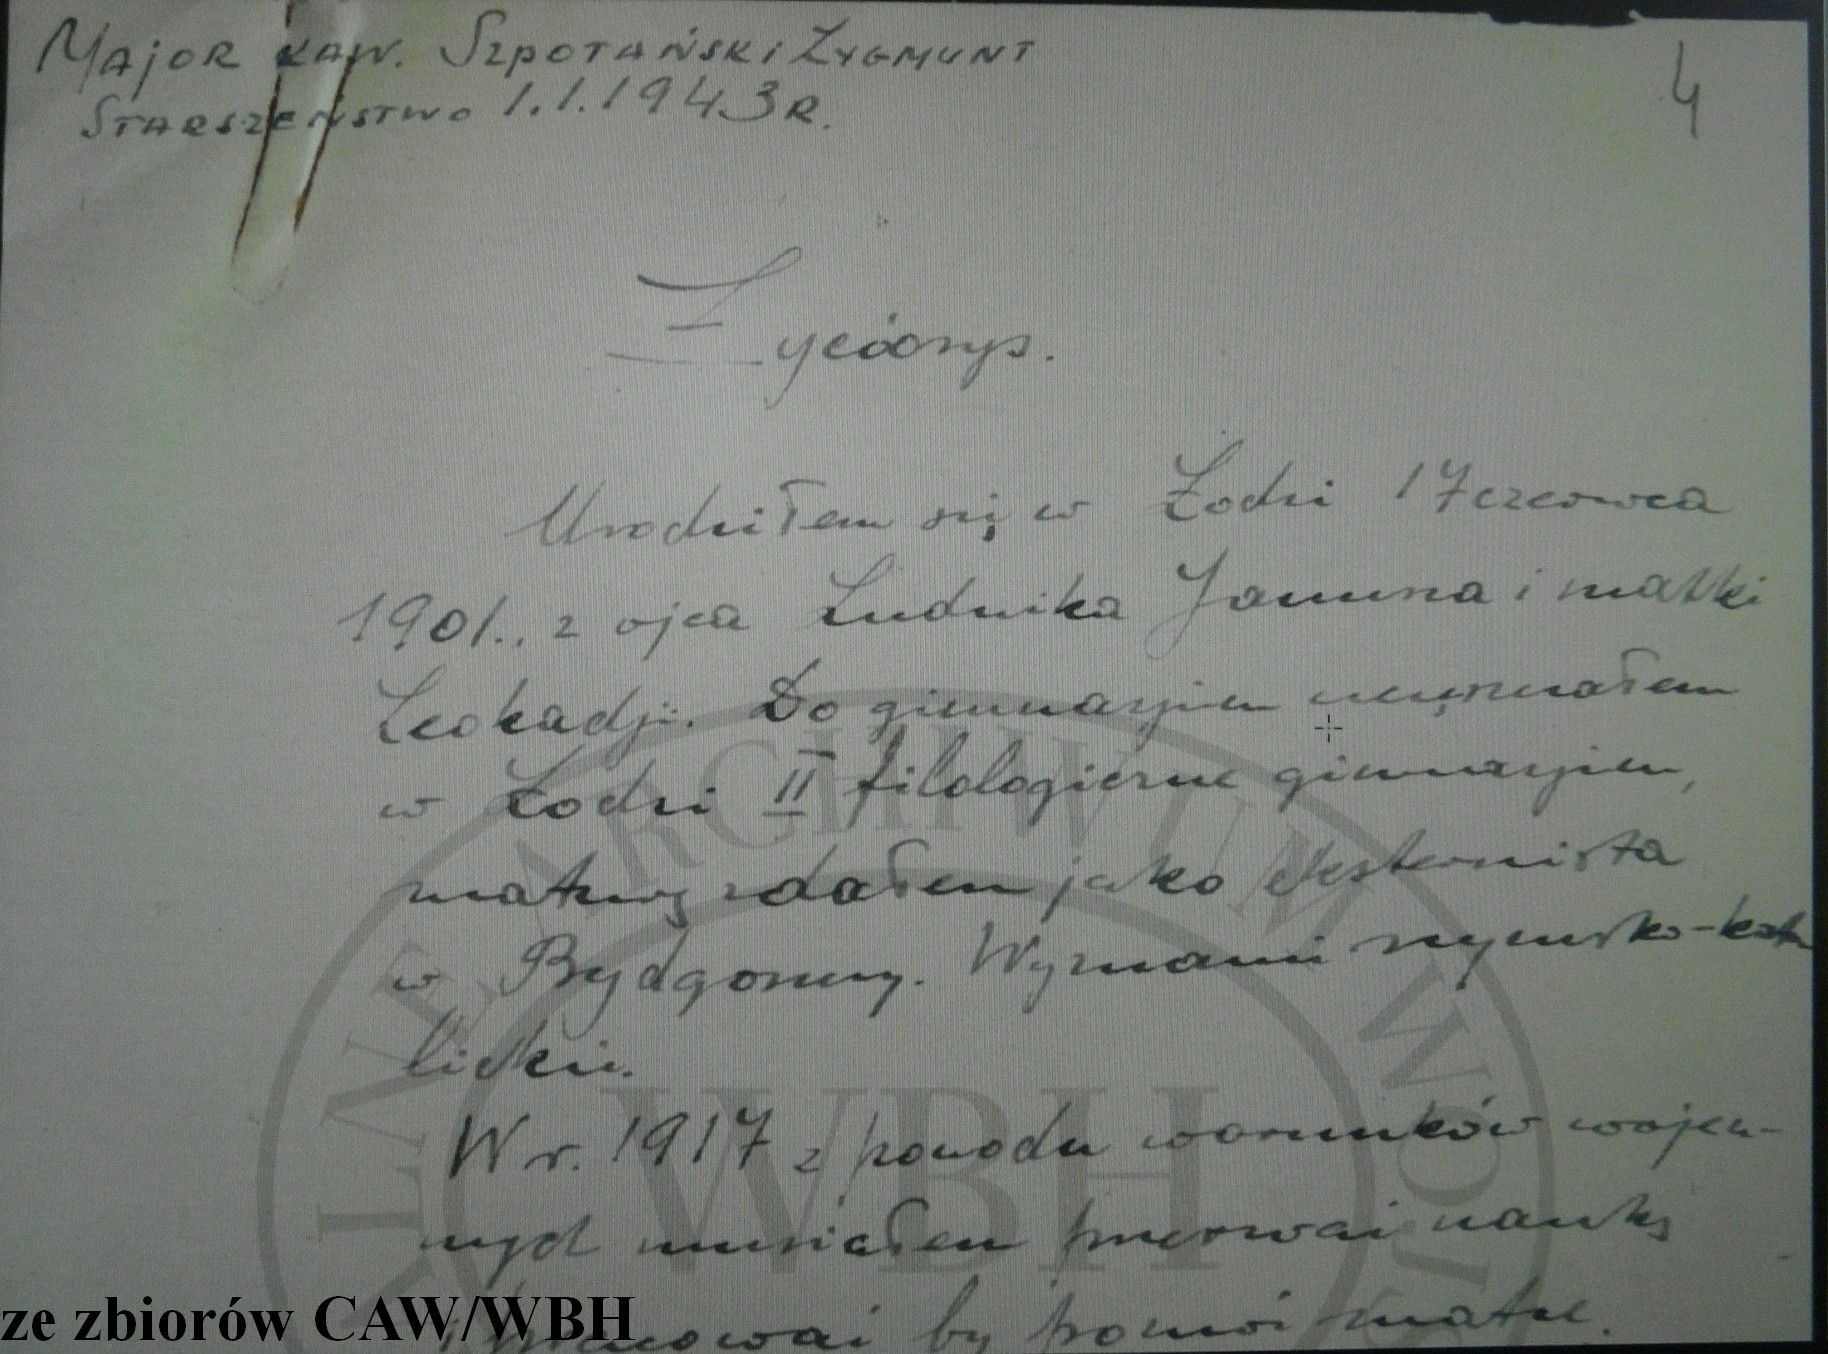 Major kaw. Szpotański Zygmunt
Starszeństwo 1.1.1943 r.
4
Życiorys.
Urodziłem się w Łodzi 17 czerwca
1901., z ojca Ludwika Januna i matki
Leokadji. Do gimnazjum uczęszczałem
w Łodzi II filologiczne gimnazjum,
maturę zdałem jako eksternista
w Bydgoszczy. Wyznanie rzymsko-kato
lickie.
W r. 1917 z powodu warunków wojen-
nych musiałem przerwać naukę
i pracować by pomóc matce.
ze zbiorów CAW/WBH
ARCHIWUM WOJ
WBH